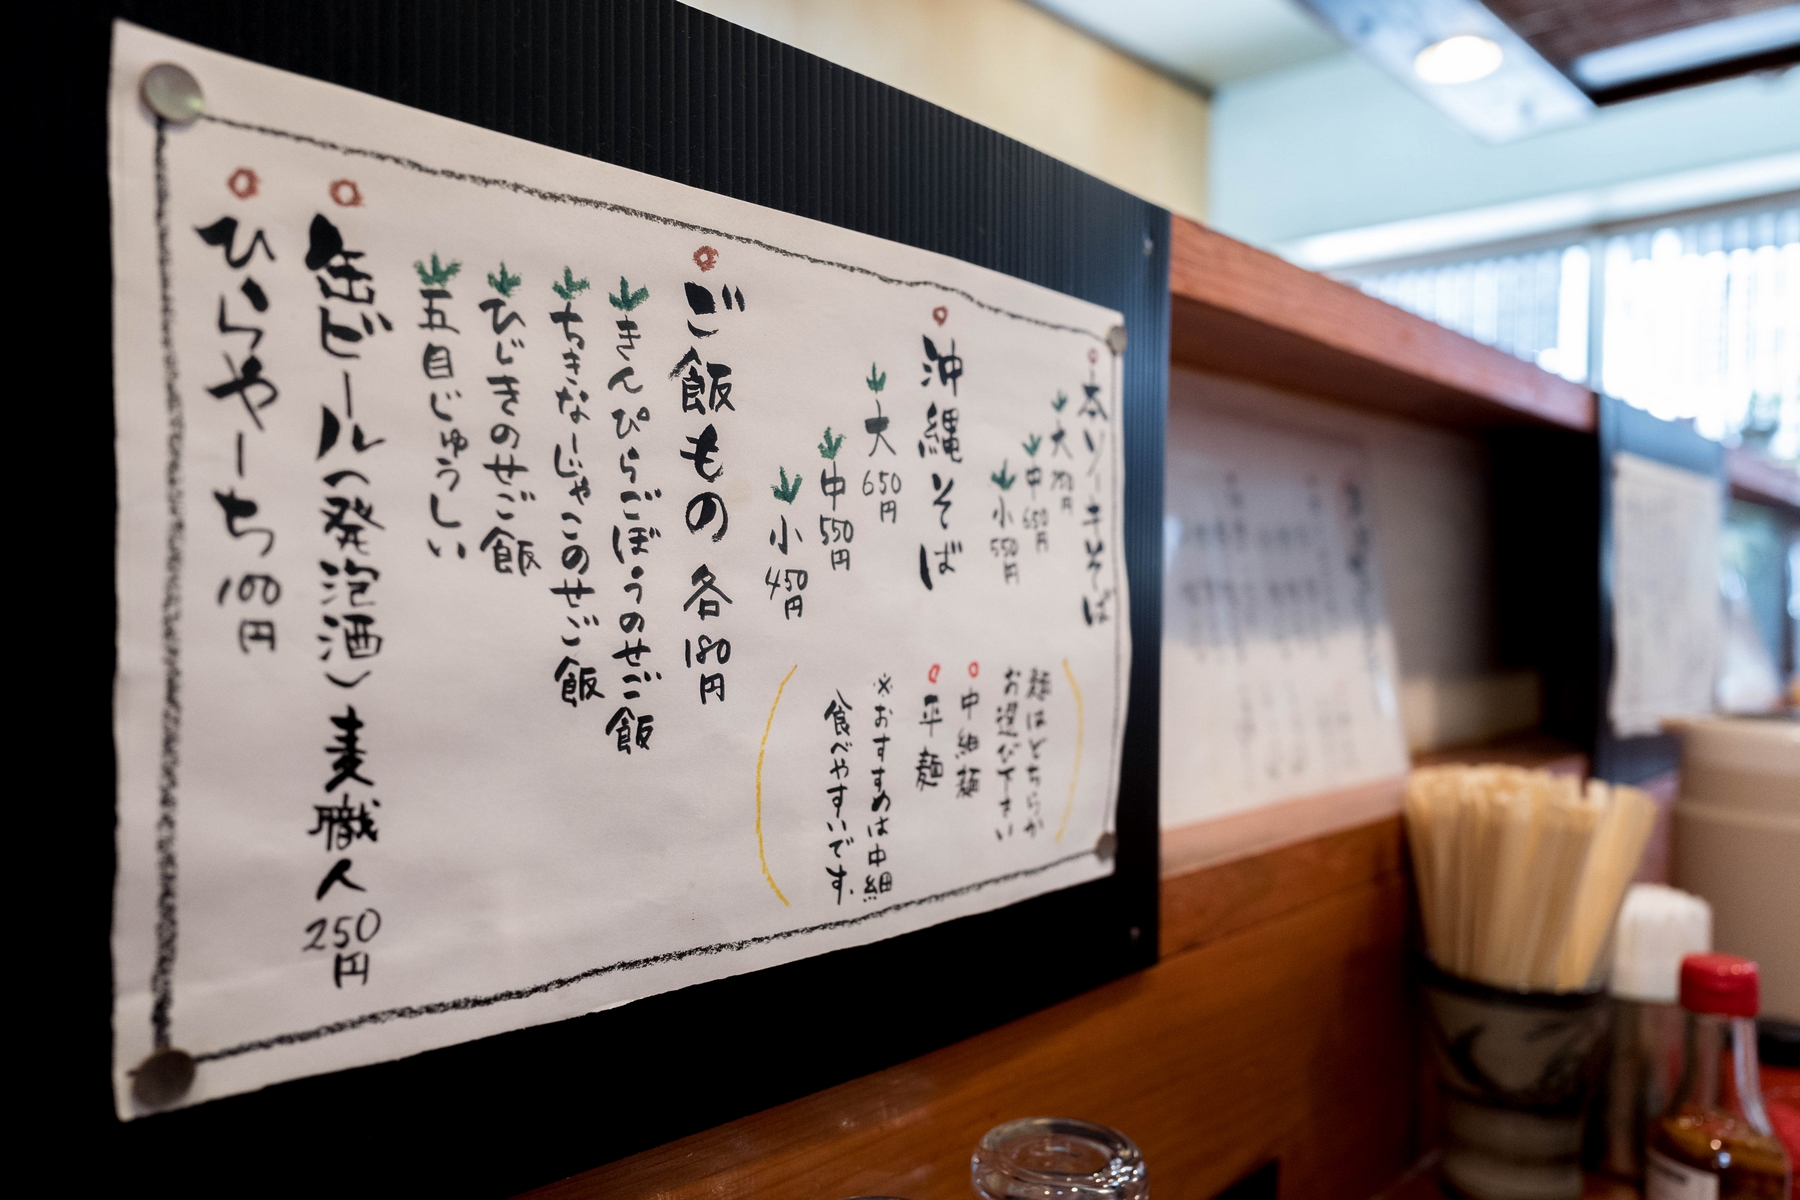 本ソーキそば
大750円
中650円
小550円
沖縄そば
大650円
中550円
小450円
麺はどちらか
お選び下さい
中細麺
平麺
※おすすめは中細
食べやすいです。
ご飯もの 各180円
きんぴらごぼうのせご飯
ちきなーじゃこのせご飯
ひじきのせご飯
五目じゅうしい
缶ビール(発泡酒)麦職人250円
ひらやーち100円